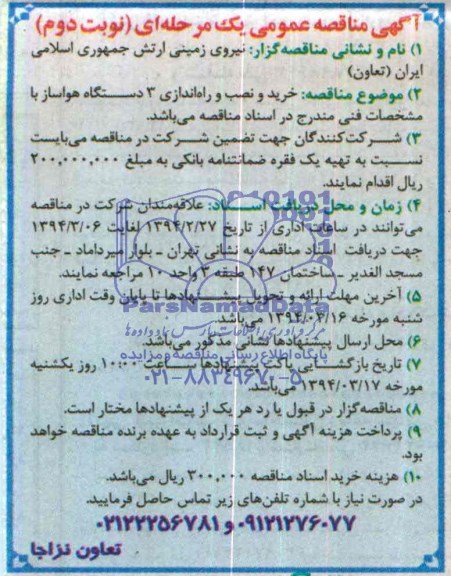 آگهی مناقصه عمومی یک مرحله‌ای (نوبت دوم)
۱) نام و نشانی مناقصه‌گزار: نیروی زمینی ارتش جمهوری اسلامی
ایران (تعاون)
۲) موضوع مناقصه: خرید و نصب و راه‌اندازی ۳ دستگاه هواساز با
مشخصات فنی مندرج در اسناد مناقصه می‌باشد.
۳) شرکت‌کنندگان جهت تضمین شرکت در مناقصه می‌بایست
نسبت به تهیه یک فقره ضمانتنامه بانکی به مبلغ ۲۰۰,۰۰۰,۰۰۰
ریال اقدام نمایند.
۴) زمان و محل دریافت اسناد: علاقه‌مندان شرکت در مناقصه
می‌توانند در ساعات اداری از تاریخ ۱۳۹۴/۲/۲۷ لغایت ۱۳۹۴/۳/۰۶
جهت دریافت اسناد مناقصه به نشانی تهران ـ بلوار میرداماد ـ جنب
مسجد الغدیر ـ ساختمان ۱۴۷ طبقه ۳ واحد ۱۰ مراجعه نمایند.
۵) آخرین مهلت ارائه و تحویل پیشنهادها تا پایان وقت اداری روز
شنبه مورخه ۱۳۹۴/۰۳/۱۶ می‌باشد.
ParsNamadData
مرکز فرآوری اطلاعات پارس نماد داده‌ها
۶) محل ارسال پیشنهادها نشانی مذکور می‌باشد.
پایگاه اطلاع رسانی مناقصه و مزایده
۷) تاریخ بازگشایی پاکت پیشنهادها ساعت ۱۰:۰۰ روز یکشنبه
مورخه ۱۳۹۴/۰۳/۱۷ می‌باشد.
۰۲۱-۸۸۳۴۹۶۷۰-۵
۸) مناقصه‌گزار در قبول یا رد هر یک از پیشنهادها مختار است.
۹) پرداخت هزینه آگهی و ثبت قرارداد به عهده برنده مناقصه خواهد
بود.
۱۰) هزینه خرید اسناد مناقصه ۳۰۰,۰۰۰ ریال می‌باشد.
در صورت نیاز با شماره تلفن‌های زیر تماس حاصل فرمایید.
۰۹۱۲۱۲۷۶۰۷۷ و ۰۲۱۲۲۲۵۶۷۸۱
تعاون نزاجا